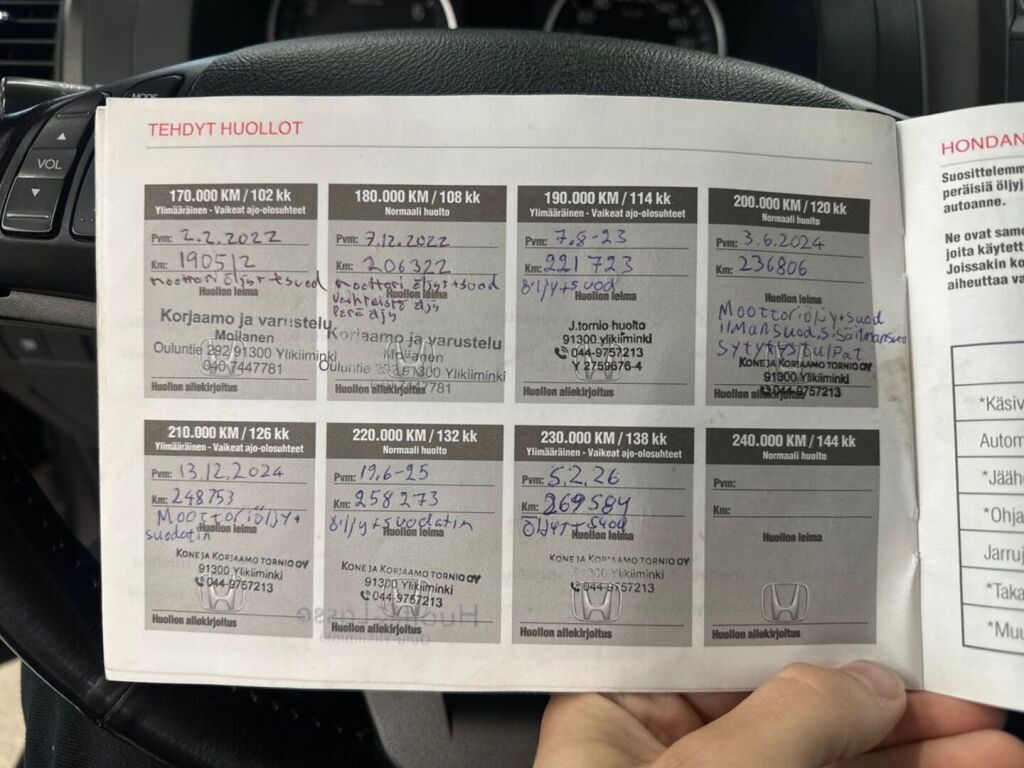 MODE
VOL
TEHDYT HUOLLOT
170.000 KM / 102 kk
Ylimääräinen - Vaikeat ajo-olosuhteet
Pvm: 2.2.2022
Km: 190512
moottori öljyt + suod
Huollon leima
Korjaamo ja varustelu
Moilanen
Ouluntie 292 91300 Ylikiiminki
040 7447781
Huollon allekirjoitus
180.000 KM / 108 kk
Normaali huolto
Pvm: 7.12.2022
Km: 206322
moottori öljyt + suod
Huollon leima
Vaihteisto öljy
Perä öljy
Korjaamo ja varustelu
Moilanen
Ouluntie 292 91300 Ylikiiminki
Huollon allekirjoitus
190.000 KM / 114 kk
Ylimääräinen - Vaikeat ajo-olosuhteet
Pvm: 7.8-23
Km: 221 723
öljy + suod
Huollon leima
J.tornio huolto
91300 Ylikiiminki
044-9757213
Y 2759676-4
Huollon allekirjoitus
200.000 KM / 120 kk
Normaali huolto
Pvm: 3.6.2024
Km: 236806
Huollon leima
Moottoriöljy + suod
ilmansuod, sisäilmansuod
sytytystulpat
KONE JA KORJAAMO TORNIO OY
91300 Ylikiiminki
044-9757213
Huollon allekirjoitus
210.000 KM / 126 kk
Ylimääräinen - Vaikeat ajo-olosuhteet
Pvm: 13.12.2024
Km: 248753
Moottoriöljy +
suodatin
Huollon leima
KONE JA KORJAAMO TORNIO OY
91300 Ylikiiminki
044-9757213
Huollon allekirjoitus
220.000 KM / 132 kk
Normaali huolto
Pvm: 19.6-25
Km: 258273
öljy + suodatin
Huollon leima
KONE JA KORJAAMO TORNIO OY
91300 Ylikiiminki
044-9757213
Huollon allekirjoitus
230.000 KM / 138 kk
Ylimääräinen - Vaikeat ajo-olosuhteet
Pvm: 5.2.26
Km: 269584
Öljyt + Suod
Huollon leima
KONE JA KORJAAMO TORNIO OY
91300 Ylikiiminki
044-9757213
Huollon allekirjoitus
240.000 KM / 144 kk
Normaali huolto
Pvm:
Km:
Huollon leima
Huollon allekirjoitus
HONDAN
Suosittelemm
peräisiä öljyj
autoanne.
Ne ovat samo
joita käytett
Joissakin ko
aiheuttaa va
*Käsiv
Autom
*Jäähd
*Ohja
Jarruj
*Taka
*Muu